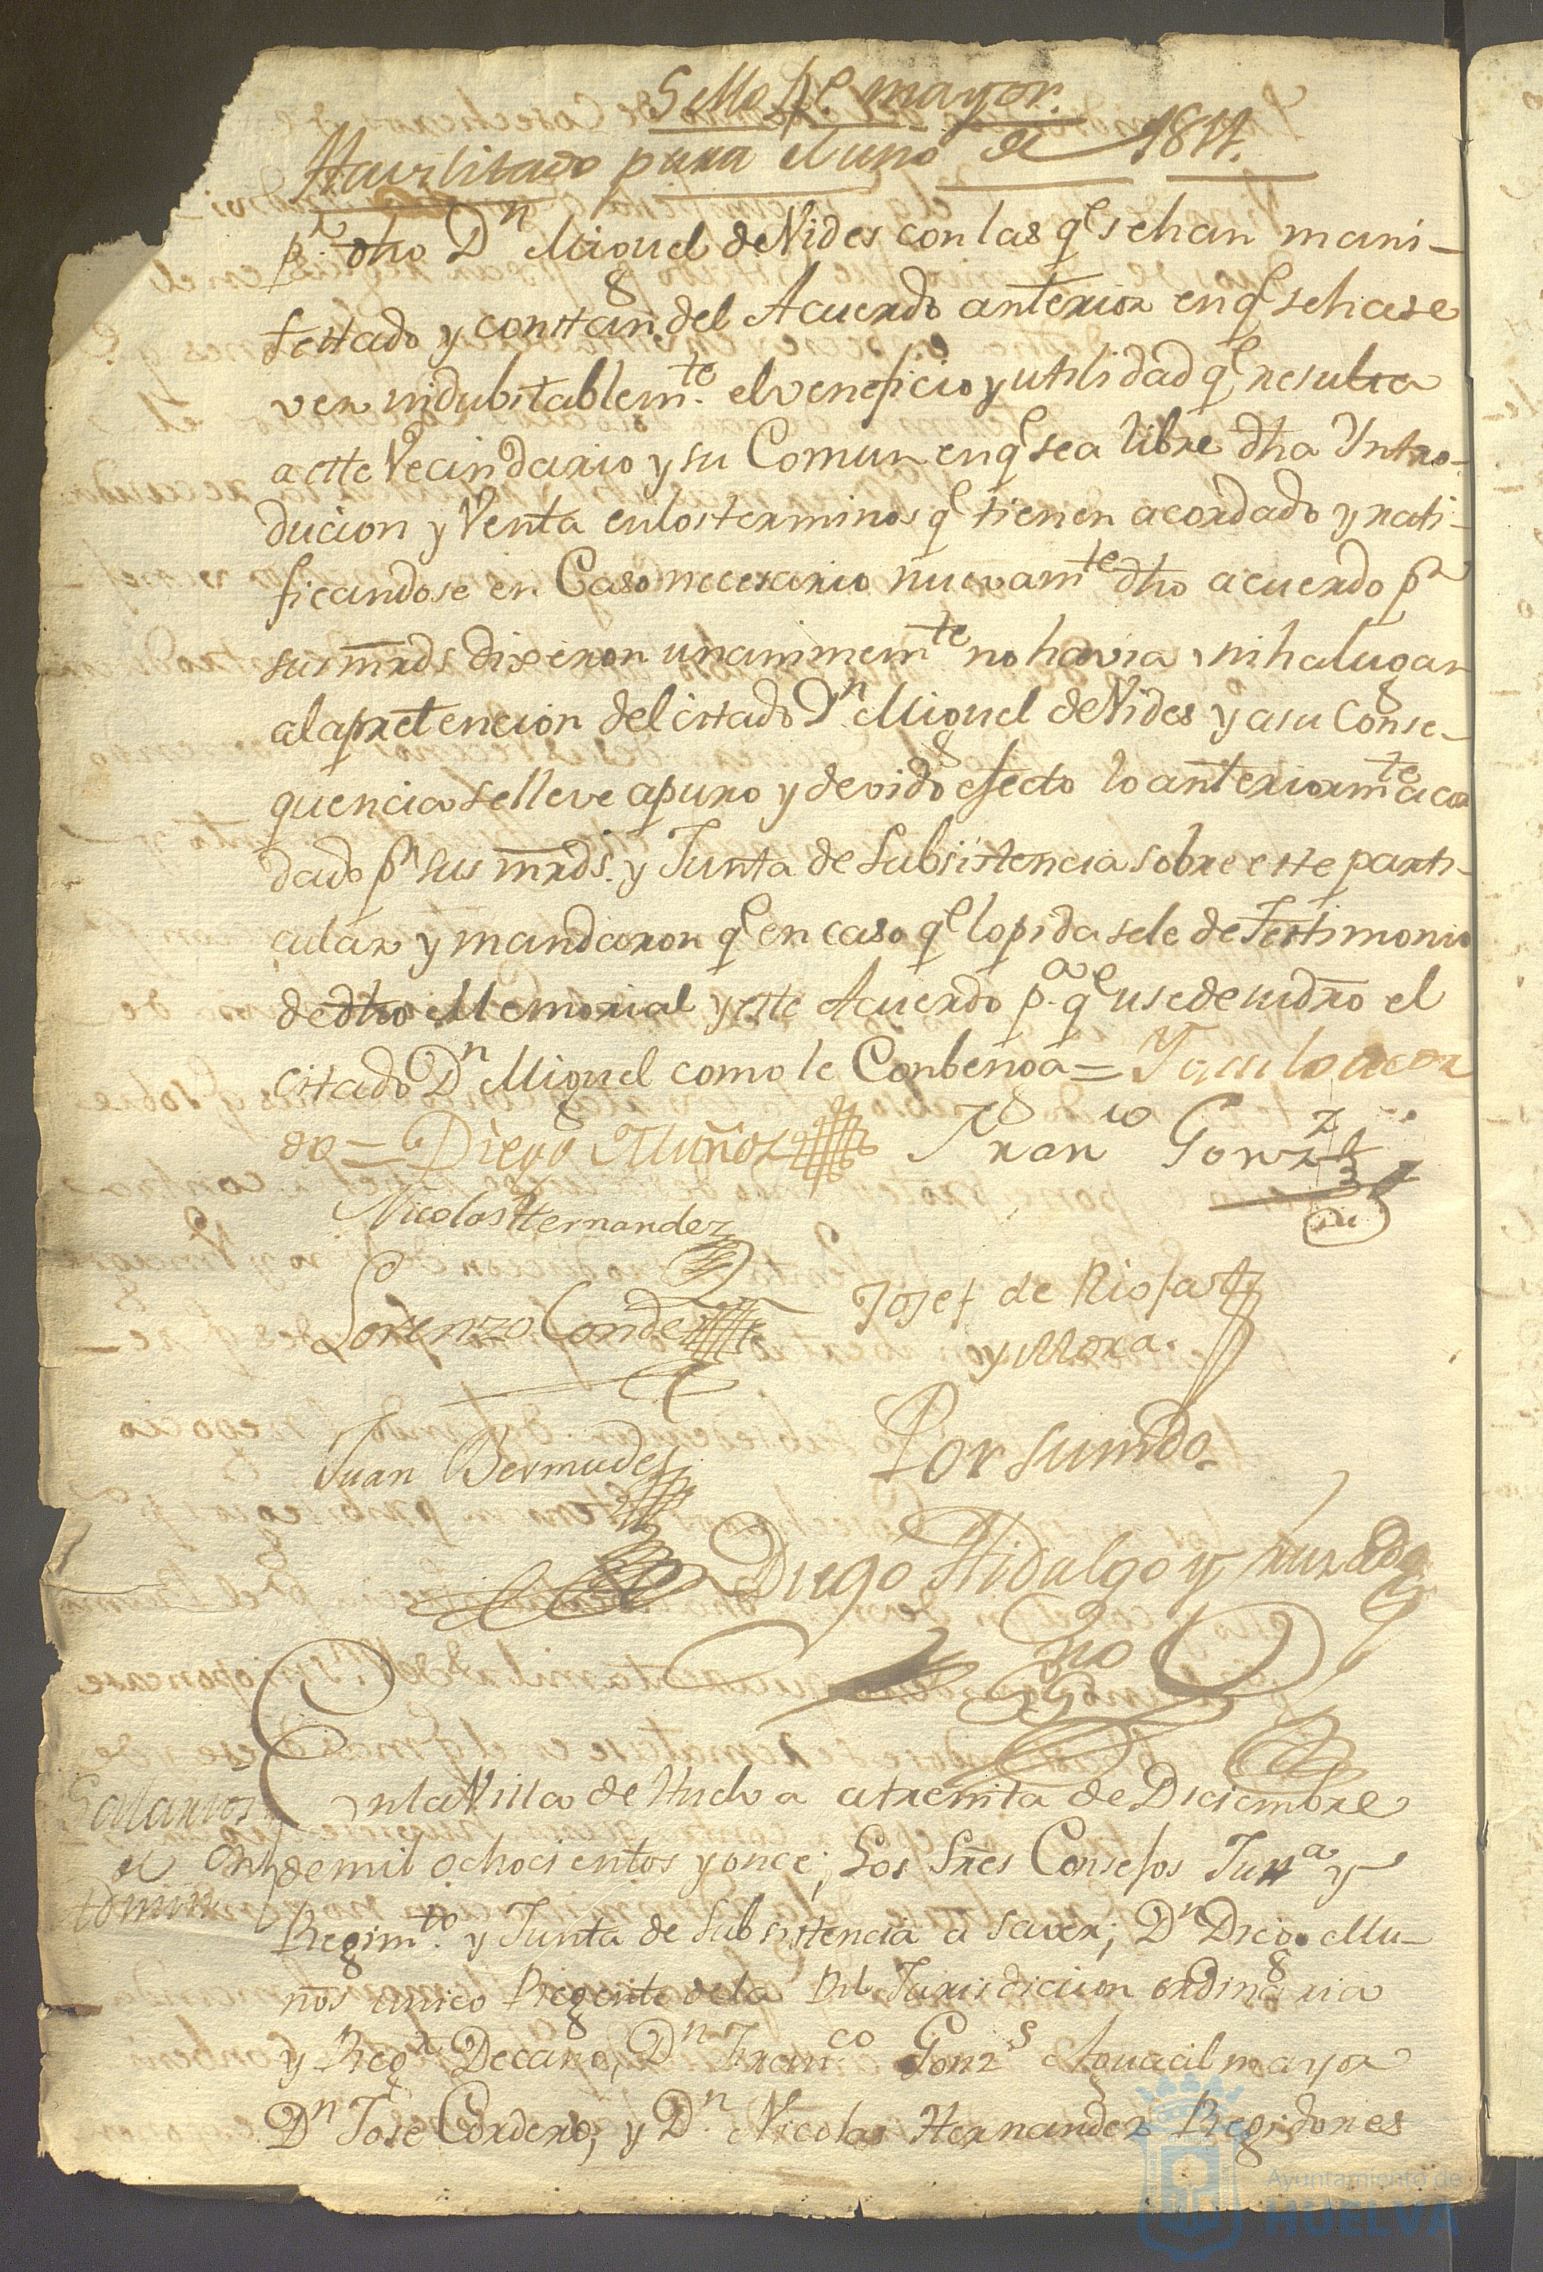 Sello p.e mayor.
Havilitado para el uno de 1811.
p.r dho D.n Miguel de Vides con las q.e se han mani-
festado y constan del Acuerdo anterior en q.e se hase
ver indubitablem.te el veneficio y utilidad q.e resulta
a este Vecindario y su Comun en q.e sea libre dha Yntro-
ducion y Venta en los terminos q.e tienen acordado y rati-
ficandose en Caso necesario nuevam.te dho acuerdo p.r
sus mrds dixeron unanimem.te no havia, ni ha lugar
a la pretencion del citado D.n Miguel de Vides y a su Conse-
quencia se lleve a puro y devido efecto lo anteriorm.te acor
dado p.r sus mrds. y Junta de Subsistencia sobre este parti-
cular y mandaron q.e en caso q.e lo pida se le de Testimonio
de dho Memorial y este Acuerdo p.a q.e use de su dro el
citado D.n Miguel como le Conbenga = Y asi lo acor
do = Diego Muñoz Fran.co Gonz.z
Nicolas Hernandez
Lorenzo Conde Josef de Riofa
y Mora.
Juan Bermudez Por su mdo.
Diego Hidalgo y Jurado
no
Sallarios En la Villa de Huelva a treinta de Diciembre
de mil ochocientos y once; Los Sres Consejos Jus.a y
Regim.to y Junta de Subsistencia a saver; D.n Diego Mu-
ños unico Regente de la Rl. Jurisdicion ordinaria
y Reg.r Decano, D.n Fran.co Gonz.s Alguacil mayor
D.n Jose Cordero; y D.n Nicolas Hernandez Regidores
Ayuntamiento de
HUELVA